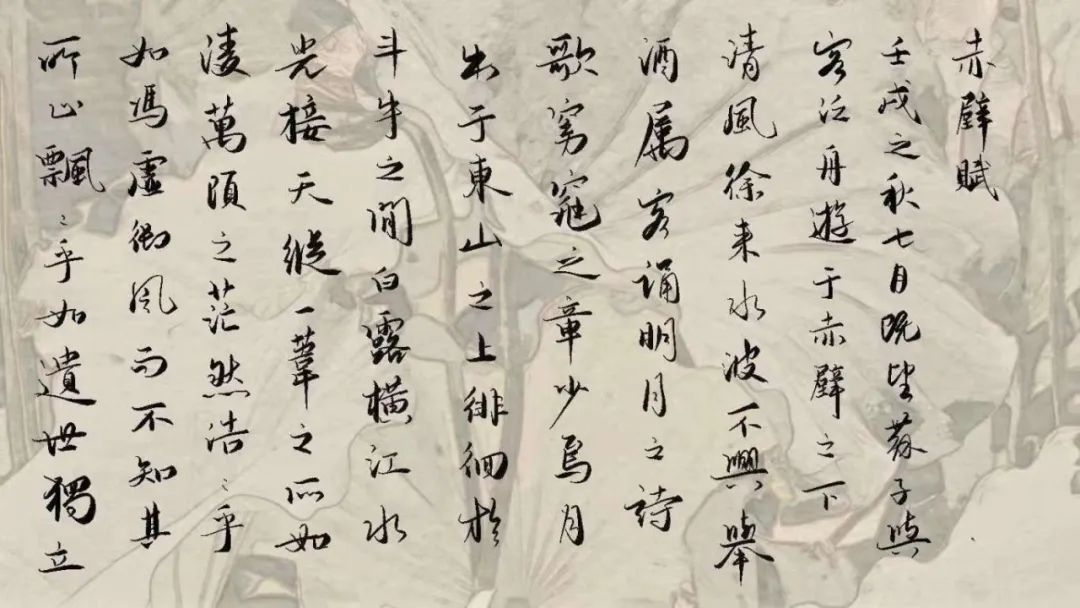 赤壁賦
壬戌之秋七月既望蘇子與
客泛舟遊于赤壁之下
清風徐来水波不興舉
酒属客誦明月之詩
歌窈窕之章少焉月
出于東山之上徘徊於
斗牛之間白露橫江水
光接天縱一葦之所如
淩萬頃之茫然浩〻乎
如馮虛御風而不知其
所止飄〻乎如遺世獨立